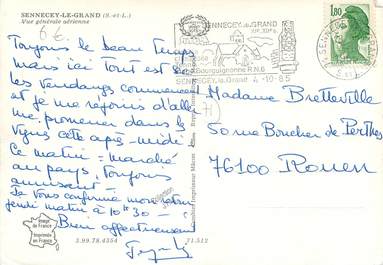 SENNECEY-LE-GRAND (S.-et-L.)
Vue générale aérienne
6 €
Toujours le beau temps
mais ici Tout est sec
les vendanges commencent
et je me réjouis d'aller
me promener dans les
vignes cette après-midi
Ce matin = marché
au pays. Toujours
amusant -
Je vous confirme mon retour
jeudi matin à 10h30 -
Bien affectueusement
Image de France
Imprimée en France
3.99.78.4354
71.512
Combier Imprimeur Mâcon
71
SENNECEY-LE-GRAND
Bourguignonne R.N.6
SENNECEY-le-Grand 4-10-85
1,80
Madame Bretteville
50 rue Boucher de Perthes
76100 Rouen